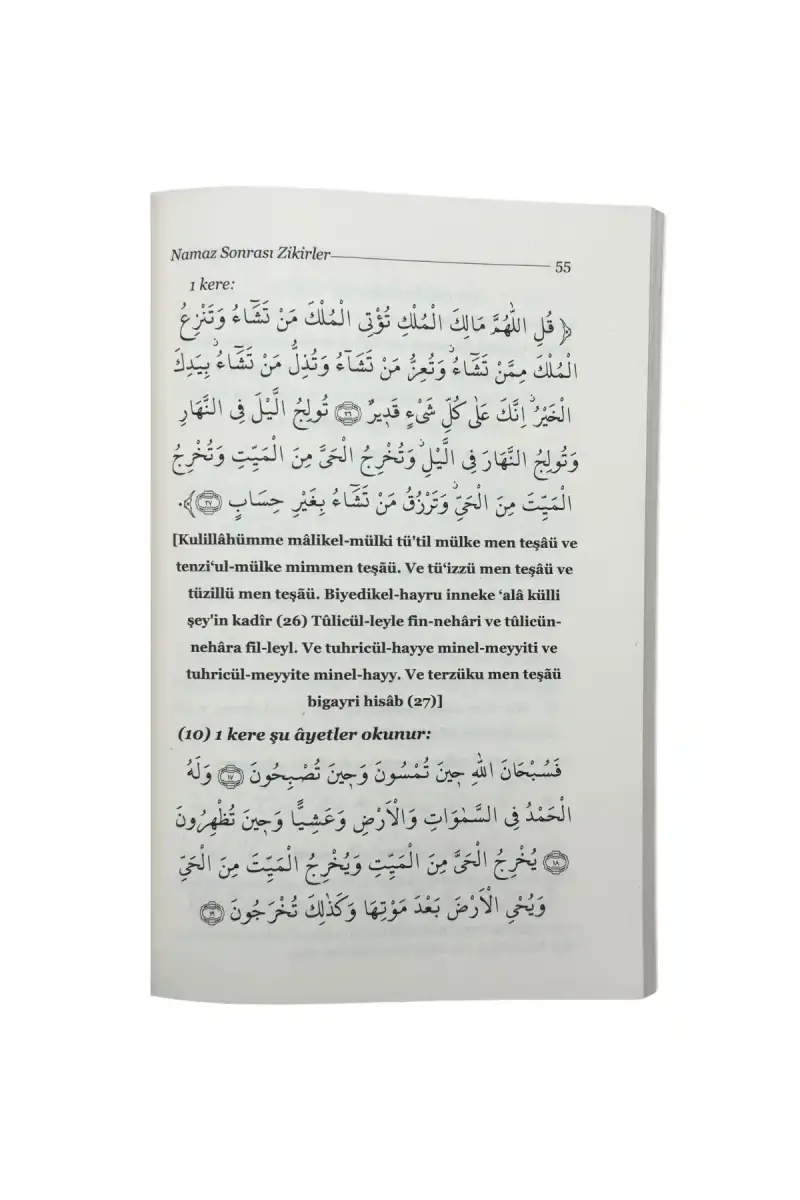 Namaz Sonrası Zikirler 55
1 kere:
﴿ قُلِ اللّٰهُمَّ مَالِكَ الْمُلْكِ تُؤْتِى الْمُلْكَ مَنْ تَشَٓاءُ وَتَنْزِعُ
الْمُلْكَ مِمَّنْ تَشَٓاءُۘ وَتُعِزُّ مَنْ تَشَٓاءُ وَتُذِلُّ مَنْ تَشَٓاءُۘ بِيَدِكَ
الْخَيْرُۘ اِنَّكَ عَلٰى كُلِّ شَىْءٍ قَدٖيرٌ ﴿٢٦﴾ تُولِجُ الَّيْلَ فِى النَّهَارِ
وَتُولِجُ النَّهَارَ فِى الَّيْلِۘ وَتُخْرِجُ الْحَىَّ مِنَ الْمَيِّتِ وَتُخْرِجُ
الْمَيِّتَ مِنَ الْحَىِّۘ وَتَرْزُقُ مَنْ تَشَٓاءُ بِغَيْرِ حِسَابٍ ﴿٢٧﴾﴾.
[Kulillâhümme mâlikel-mülki tü'til mülke men teşâü ve
tenzi‘ul-mülke mimmen teşãü. Ve tü‘izzü men teşâü ve
tüzillü men teşãü. Biyedikel-hayru inneke ‘alâ külli
şey'in kadîr (26) Tûlicül-leyle fin-nehâri ve tûlicün-
nehâra fil-leyl. Ve tuhricül-hayye minel-meyyiti ve
tuhricül-meyyite minel-hayy. Ve terzüku men teşãü
bigayri hisâb (27)]
(10) 1 kere şu âyetler okunur:
فَسُبْحَانَ اللّٰهِ حٖينَ تُمْسُونَ وَحٖينَ تُصْبِحُونَ ﴿١٧﴾ وَلَهُ
الْحَمْدُ فِى السَّمٰوَاتِ وَالْاَرْضِ وَعَشِيًّا وَحٖينَ تُظْهِرُونَ
﴿١٨﴾ يُخْرِجُ الْحَىَّ مِنَ الْمَيِّتِ وَيُخْرِجُ الْمَيِّتَ مِنَ الْحَىِّ
وَيُحْىِ الْاَرْضَ بَعْدَ مَوْتِهَا وَكَذٰلِكَ تُخْرَجُونَ ﴿١٩﴾